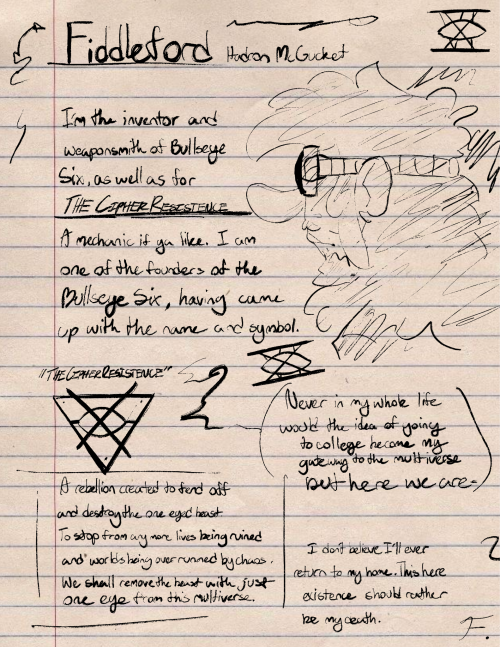 Fiddleford Hadron McGucket
I'm the inventor and
weaponsmith of Bullseye
Six, as well as for
THE CIPHER RESISTENCE
A mechanic if ya like. I am
one of the founders of the
Bullseye Six, having came
up with the name and symbol.
"THE CIPHER RESISTENCE"
A rebellion created to fend off
and destroy the one eyed beast
To stop from any more lives being ruined
and worlds being over runned by chaos.
We shall remove the beast with just
one eye from this multiverse.
Never in my whole life
would the idea of going
to college become my
gateway to the multiverse
but here we are-
I don't believe I'll ever
return to my home. This here
existence should rather
be my death.
F.